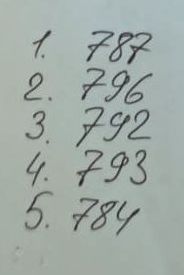 1. 787
2. 796
3. 792
4. 793
5. 784